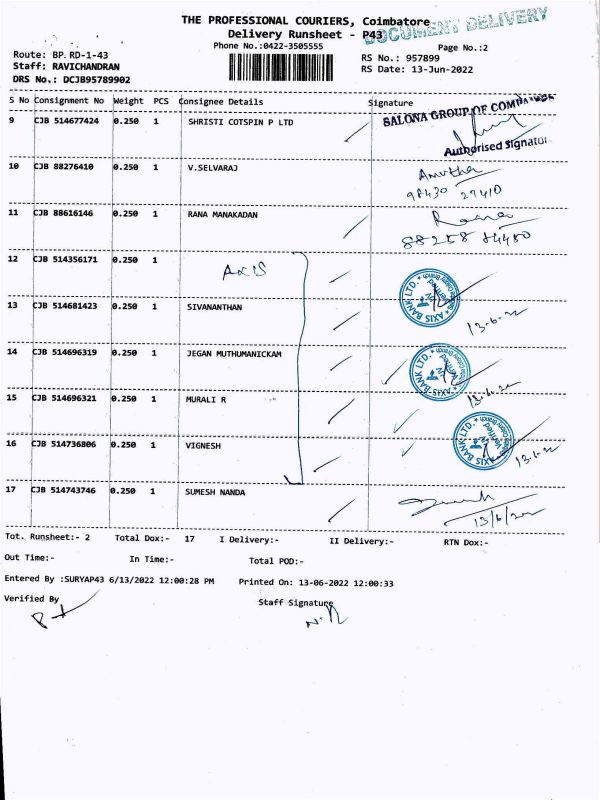 THE PROFESSIONAL COURIERS, Coimbatore
DOCUMENT DELIVERY
Delivery Runsheet - P43
Phone No.:0422-3505555
Page No.:2
Route: BP. RD-1-43
RS No.: 957899
Staff: RAVICHANDRAN
RS Date: 13-Jun-2022
DRS No.: DCJB95789902
S No Consignment No Weight PCS Consignee Details Signature
9 CJB 514677424 0.250 1 SHRISTI COTSPIN P LTD
SALONA GROUP OF COMPANIES
Authorised Signator
10 CJB 88276410 0.250 1 V.SELVARAJ
Amutha
98430 27410
11 CJB 88616146 0.250 1 RANA MANAKADAN
Rana
88258 84480
12 CJB 514356171 0.250 1
AXIS
AXIS BANK LTD.
Verified
13 CJB 514681423 0.250 1 SIVANANTHAN
13-6-22
14 CJB 514696319 0.250 1 JEGAN MUTHUMANICKAM
AXIS BANK LTD.
Verified
13-6-22
15 CJB 514696321 0.250 1 MURALI R
16 CJB 514736806 0.250 1 VIGNESH
AXIS BANK LTD.
Verified
13-6-22
17 CJB 514743746 0.250 1 SUMESH NANDA
13/6/22
Tot. Runsheet:- 2 Total Dox:- 17 I Delivery:- II Delivery:- RTN Dox:-
Out Time:- In Time:- Total POD:-
Entered By :SURYAP43 6/13/2022 12:00:28 PM Printed On: 13-06-2022 12:00:33
Verified By Staff Signature